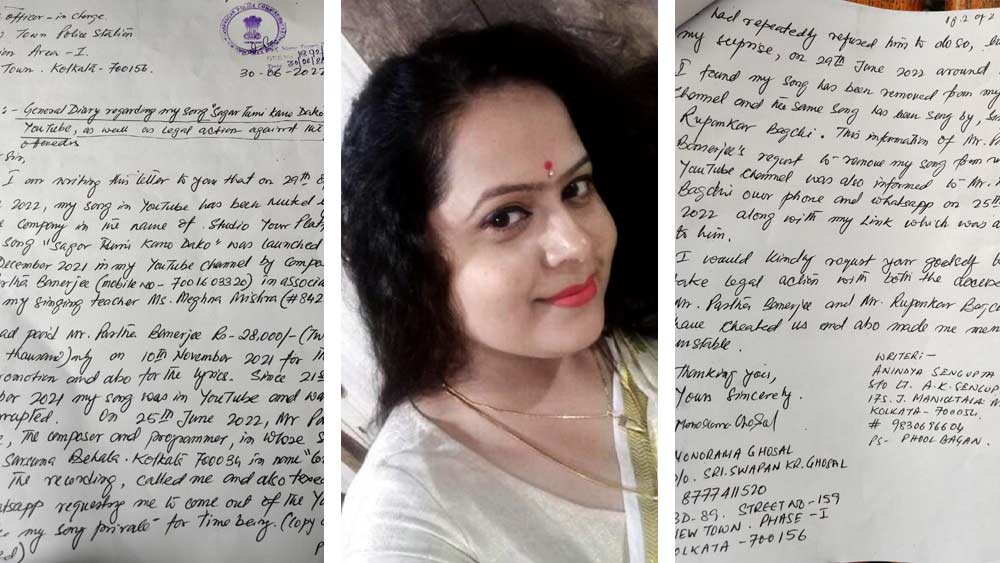 officer-in charge
Town Police Station
Area - I.
Town. Kolkata - 700156.
30-06-2022
:- General Diary regarding my song "Sagar Tumi Kano Dako
YouTube, as well as legal action against the
offenders
Sir,
I am writing this letter to you that on 29th
2022, my song in YouTube has been
company in the name of Studio Your
song "Sagor Tumi Kano Dako" was launched
December 2021 in my YouTube channel by
Banerjee (mobile no - 7001603320) in
my singing teacher Ms. Meghna Mishra (# 842
paid Mr. Partha Banerjee Rs - 28,000/-
thousand) only on 10th November 2021 for
and also for the lyrics. Since 21st
2021 my song was in YouTube and
On 25th June 2022, Mr
, The composer and programmer, in whose
Sarsuna Behala. Kolkata 700034 in name
The recording, called me and also
requesting me to come out of the
my song private" for time being. (copy
18.2 of 2
had repeatedly refused him to do so,
my surprise, on 29th June 2022 around
I found my song has been removed from my
channel and the same song has been sung by,
Rupankar Bagchi. This information of Mr.
Banerjee's request to remove my song from
YouTube channel was also informed to Mr.
Bagchi over phone and whatsapp on 25th
2022 along with my Link which was
to him.
I would kindly request your goodself
take legal action with both the
Mr. Partha Banerjee and Mr. Rupankar
have cheated us and also made me
unstable.
Thanking you,
Yours Sincerely.
Monorama Ghosal
MONORAMA GHOSAL
SRI. SWAPAN KR. GHOSAL
8777411520
BD-89. STREET NO - 159
NEW TOWN. PHASE - I
KOLKATA - 700156
WRITER:-
ANINDYA SENGUPTA
S/o LT. A.K. SENGUP
175. J. MANICKTALA
KOLKATA - 700054.
# 9830696604
PS - PHOOL BAGAN.